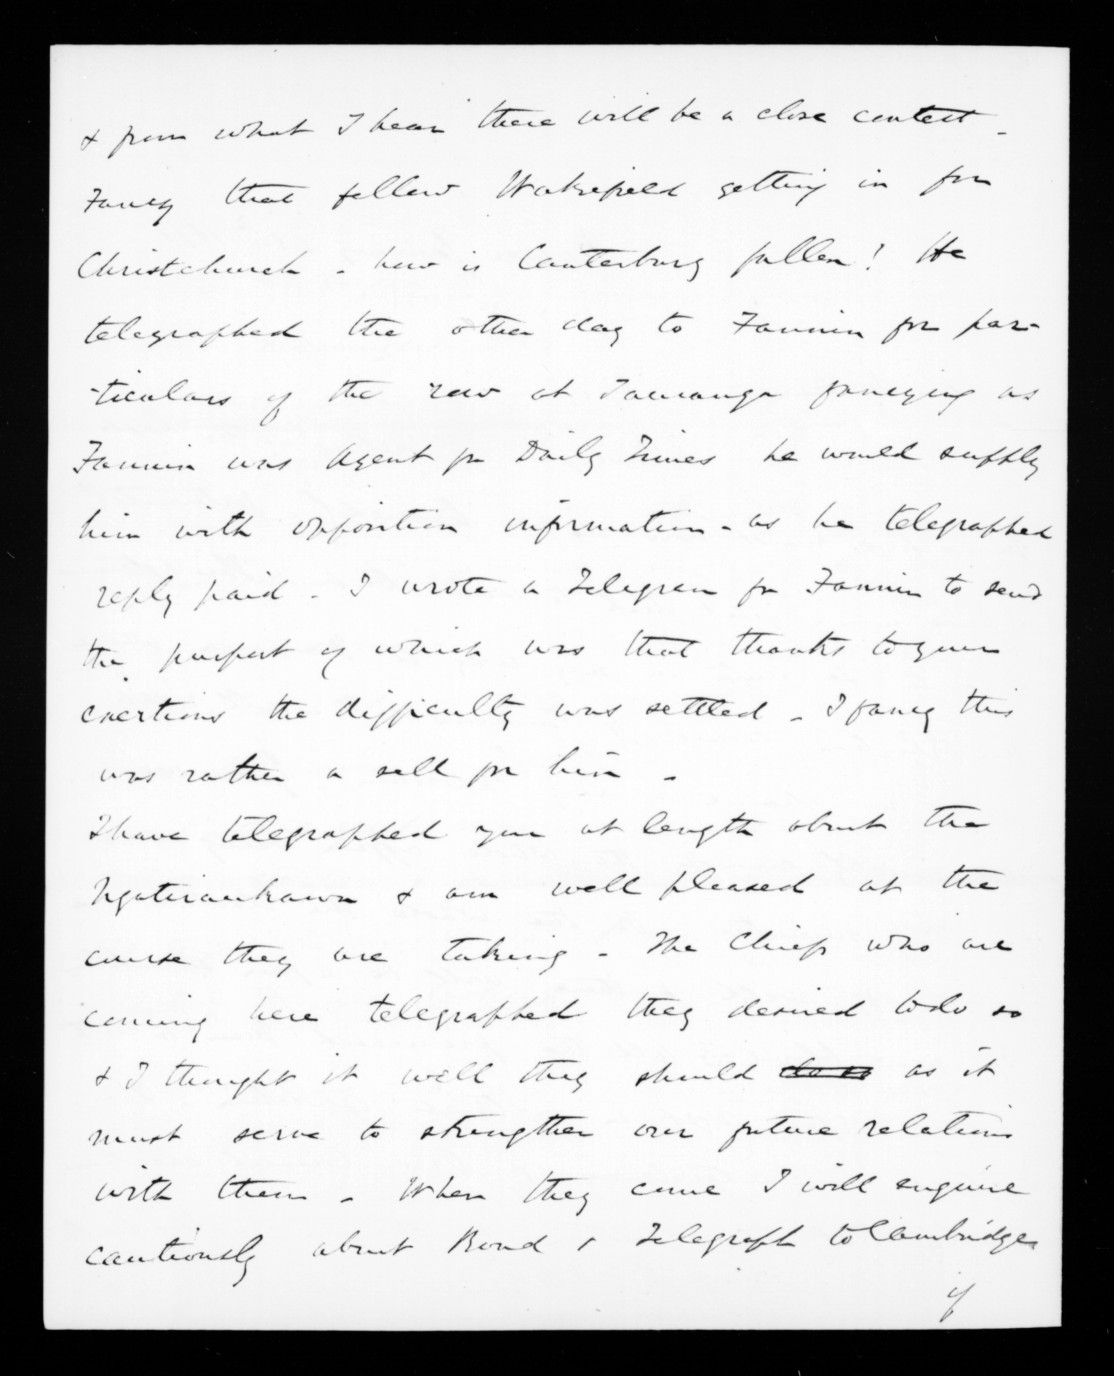 & from what I hear there will be a close contest -
Fancy that fellow Wakefield getting in for
Christchurch - how is Canterbury fallen! He
telegraphed the other day to Fannin for par-
-ticulars of the row at Tauranga fancying as
Fannin was Agent for Daily Times he would supply
him with opposition information - as he telegraphed
reply paid - I wrote a Telegram for Fannin to send
the purport of which was that thanks to your
exertions the difficulty was settled - I fancy this
was rather a sell for him -
I have telegraphed you at length about the
Ngatiraukawa & am well pleased at the
course they are taking - The Chiefs who are
coming here telegraphed they desired to do so
& I thought it well they should do so as it
must serve to strengthen our future relations
with them - When they come I will enquire
cautiously about Road & Telegraph to Cambridge
if